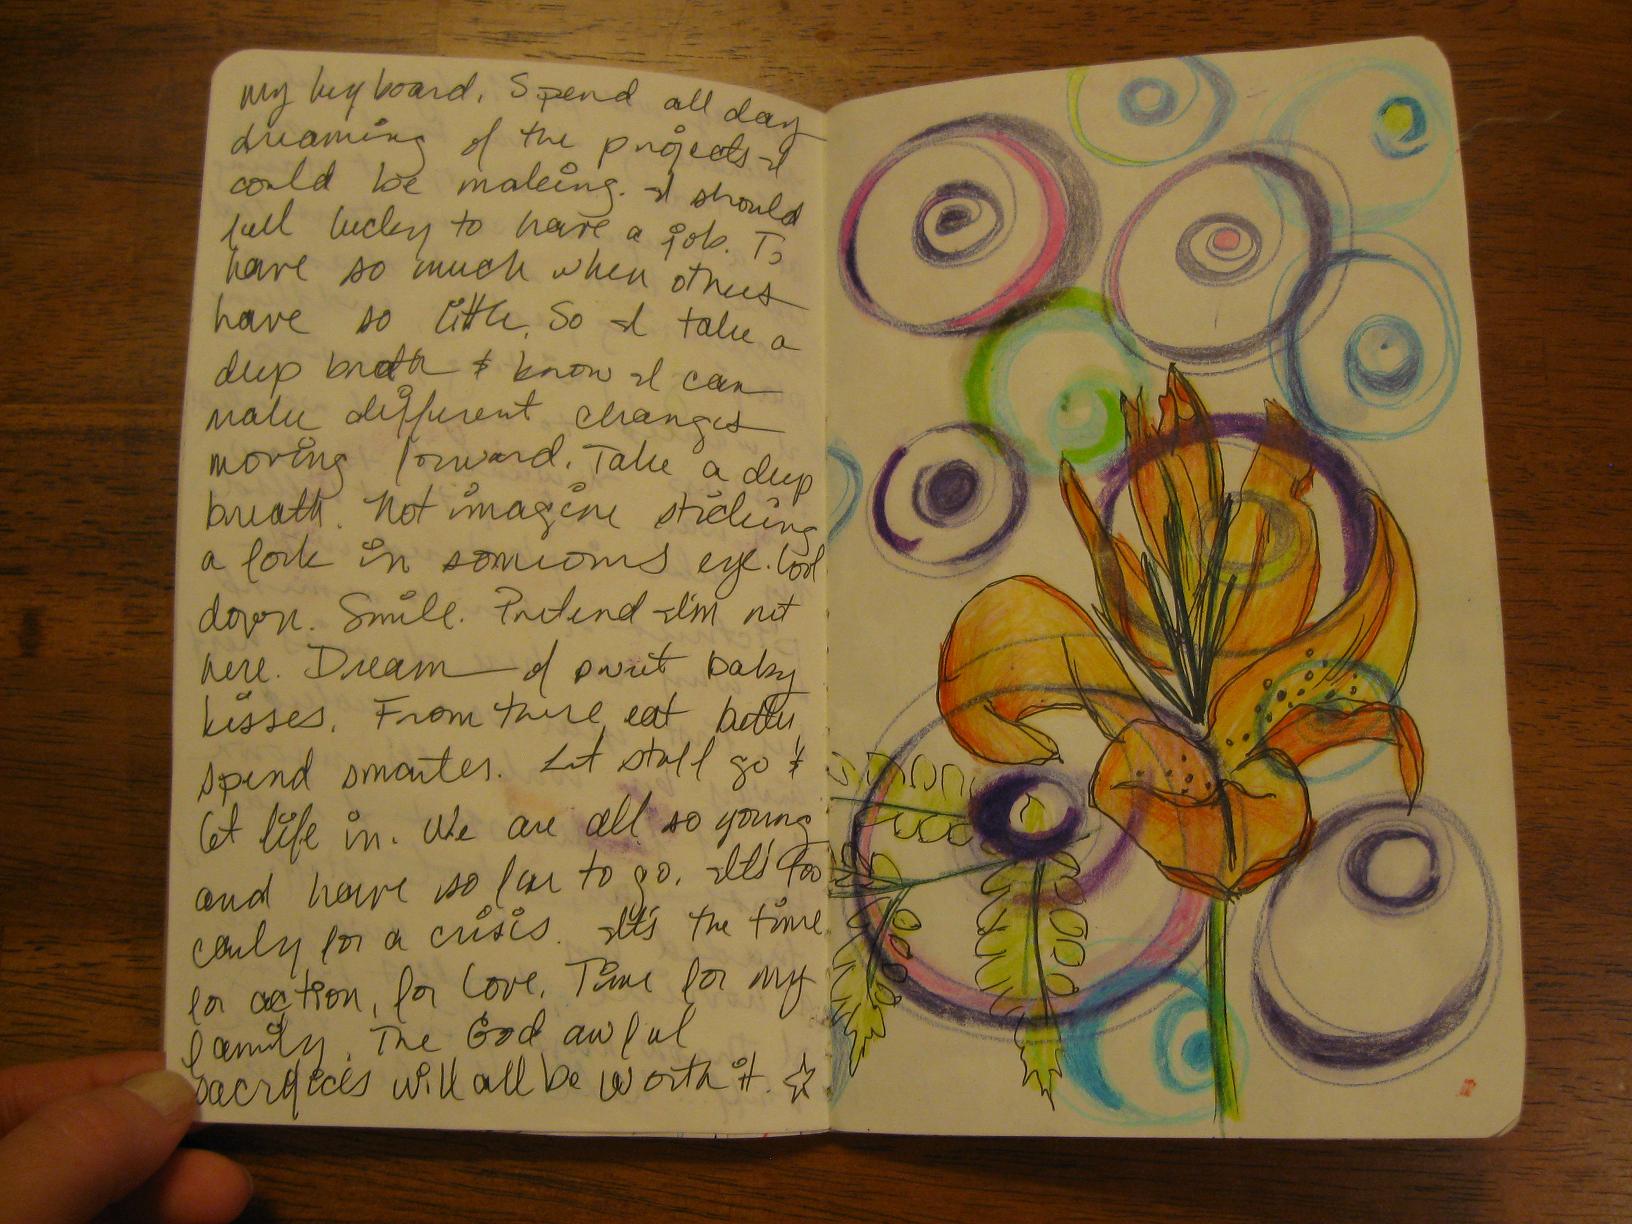 my keyboard. Spend all day
dreaming of the projects I
could be making. I should
feel lucky to have a job. To
have so much when others
have so little. So I take a
deep breath & know I can
make different changes
moving forward. Take a deep
breath. Not imagine sticking
a fork in someones eye. Cool
down. Smile. Pretend I'm not
here. Dream of sweet baby
kisses. From there, eat better
spend smarter. Let stuff go &
let life in. We are all so young
and have so far to go. It's too
early for a crisis. It's the time
for action, for love. Time for my
family. The God awful
sacrifices will all be worth it. ☆